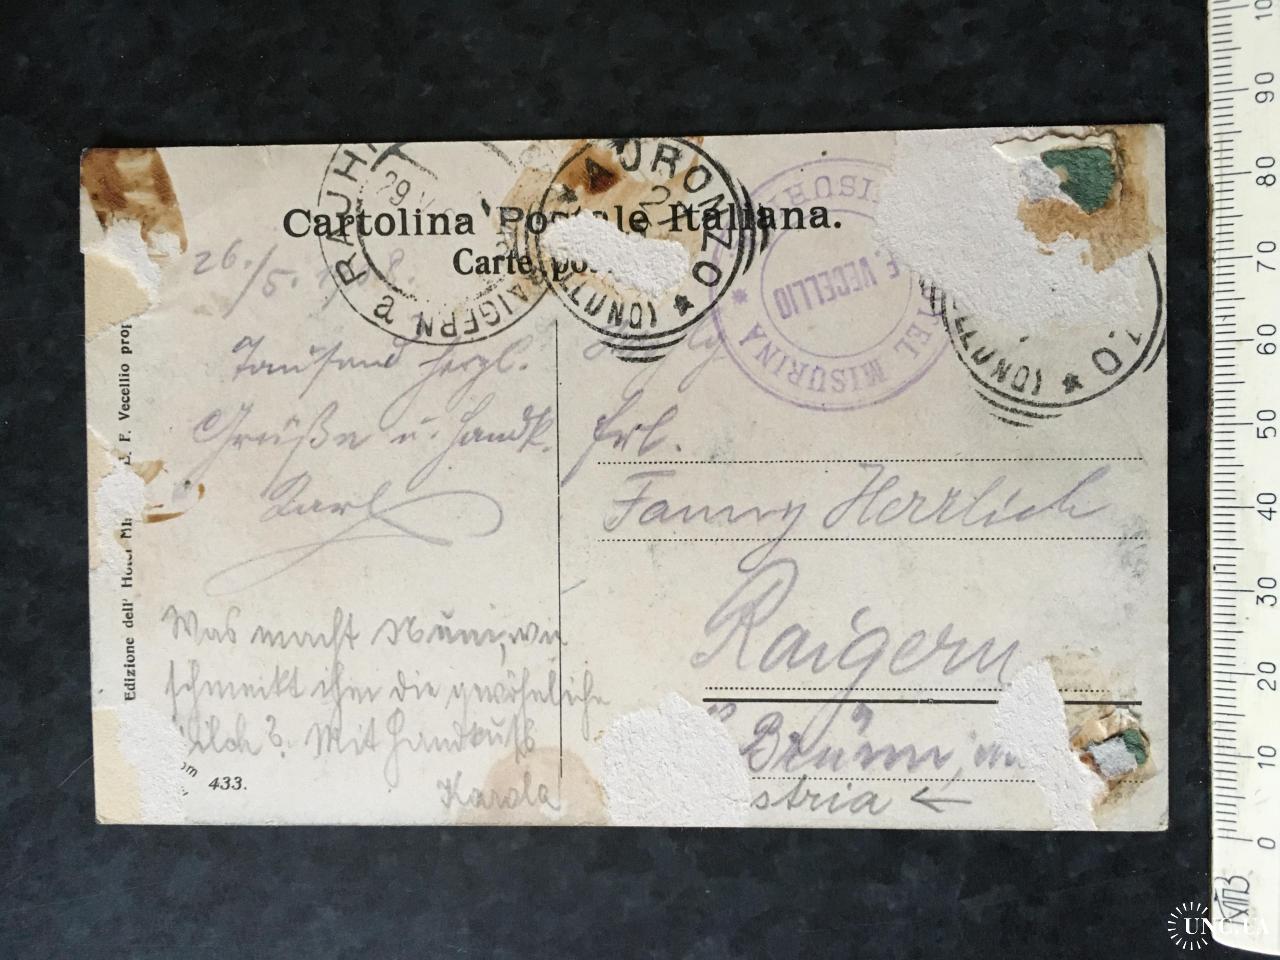 Cartolina Postale Italiana.
Carte po
RAUHR
RAIGERN
a
29
AURONZO
(BELLUNO)
HOTEL MISURINA
MISURINA
F. VECELLIO
ZO
LLUNO)
26./5.
Tausend herzl.
Grüße u. Handk.
Karl
Was macht Muni, wie
schmeckt ihm die gewöhnliche
Milch? Mit Handkuß
Karola
Frl.
Fanny Herrlich
Raigern
Brünn,
stria ←
Edizione dell' Hotel F. Vecellio prop
433.
0 10 20 30 40 50 60 70 80 90
UNC.UA